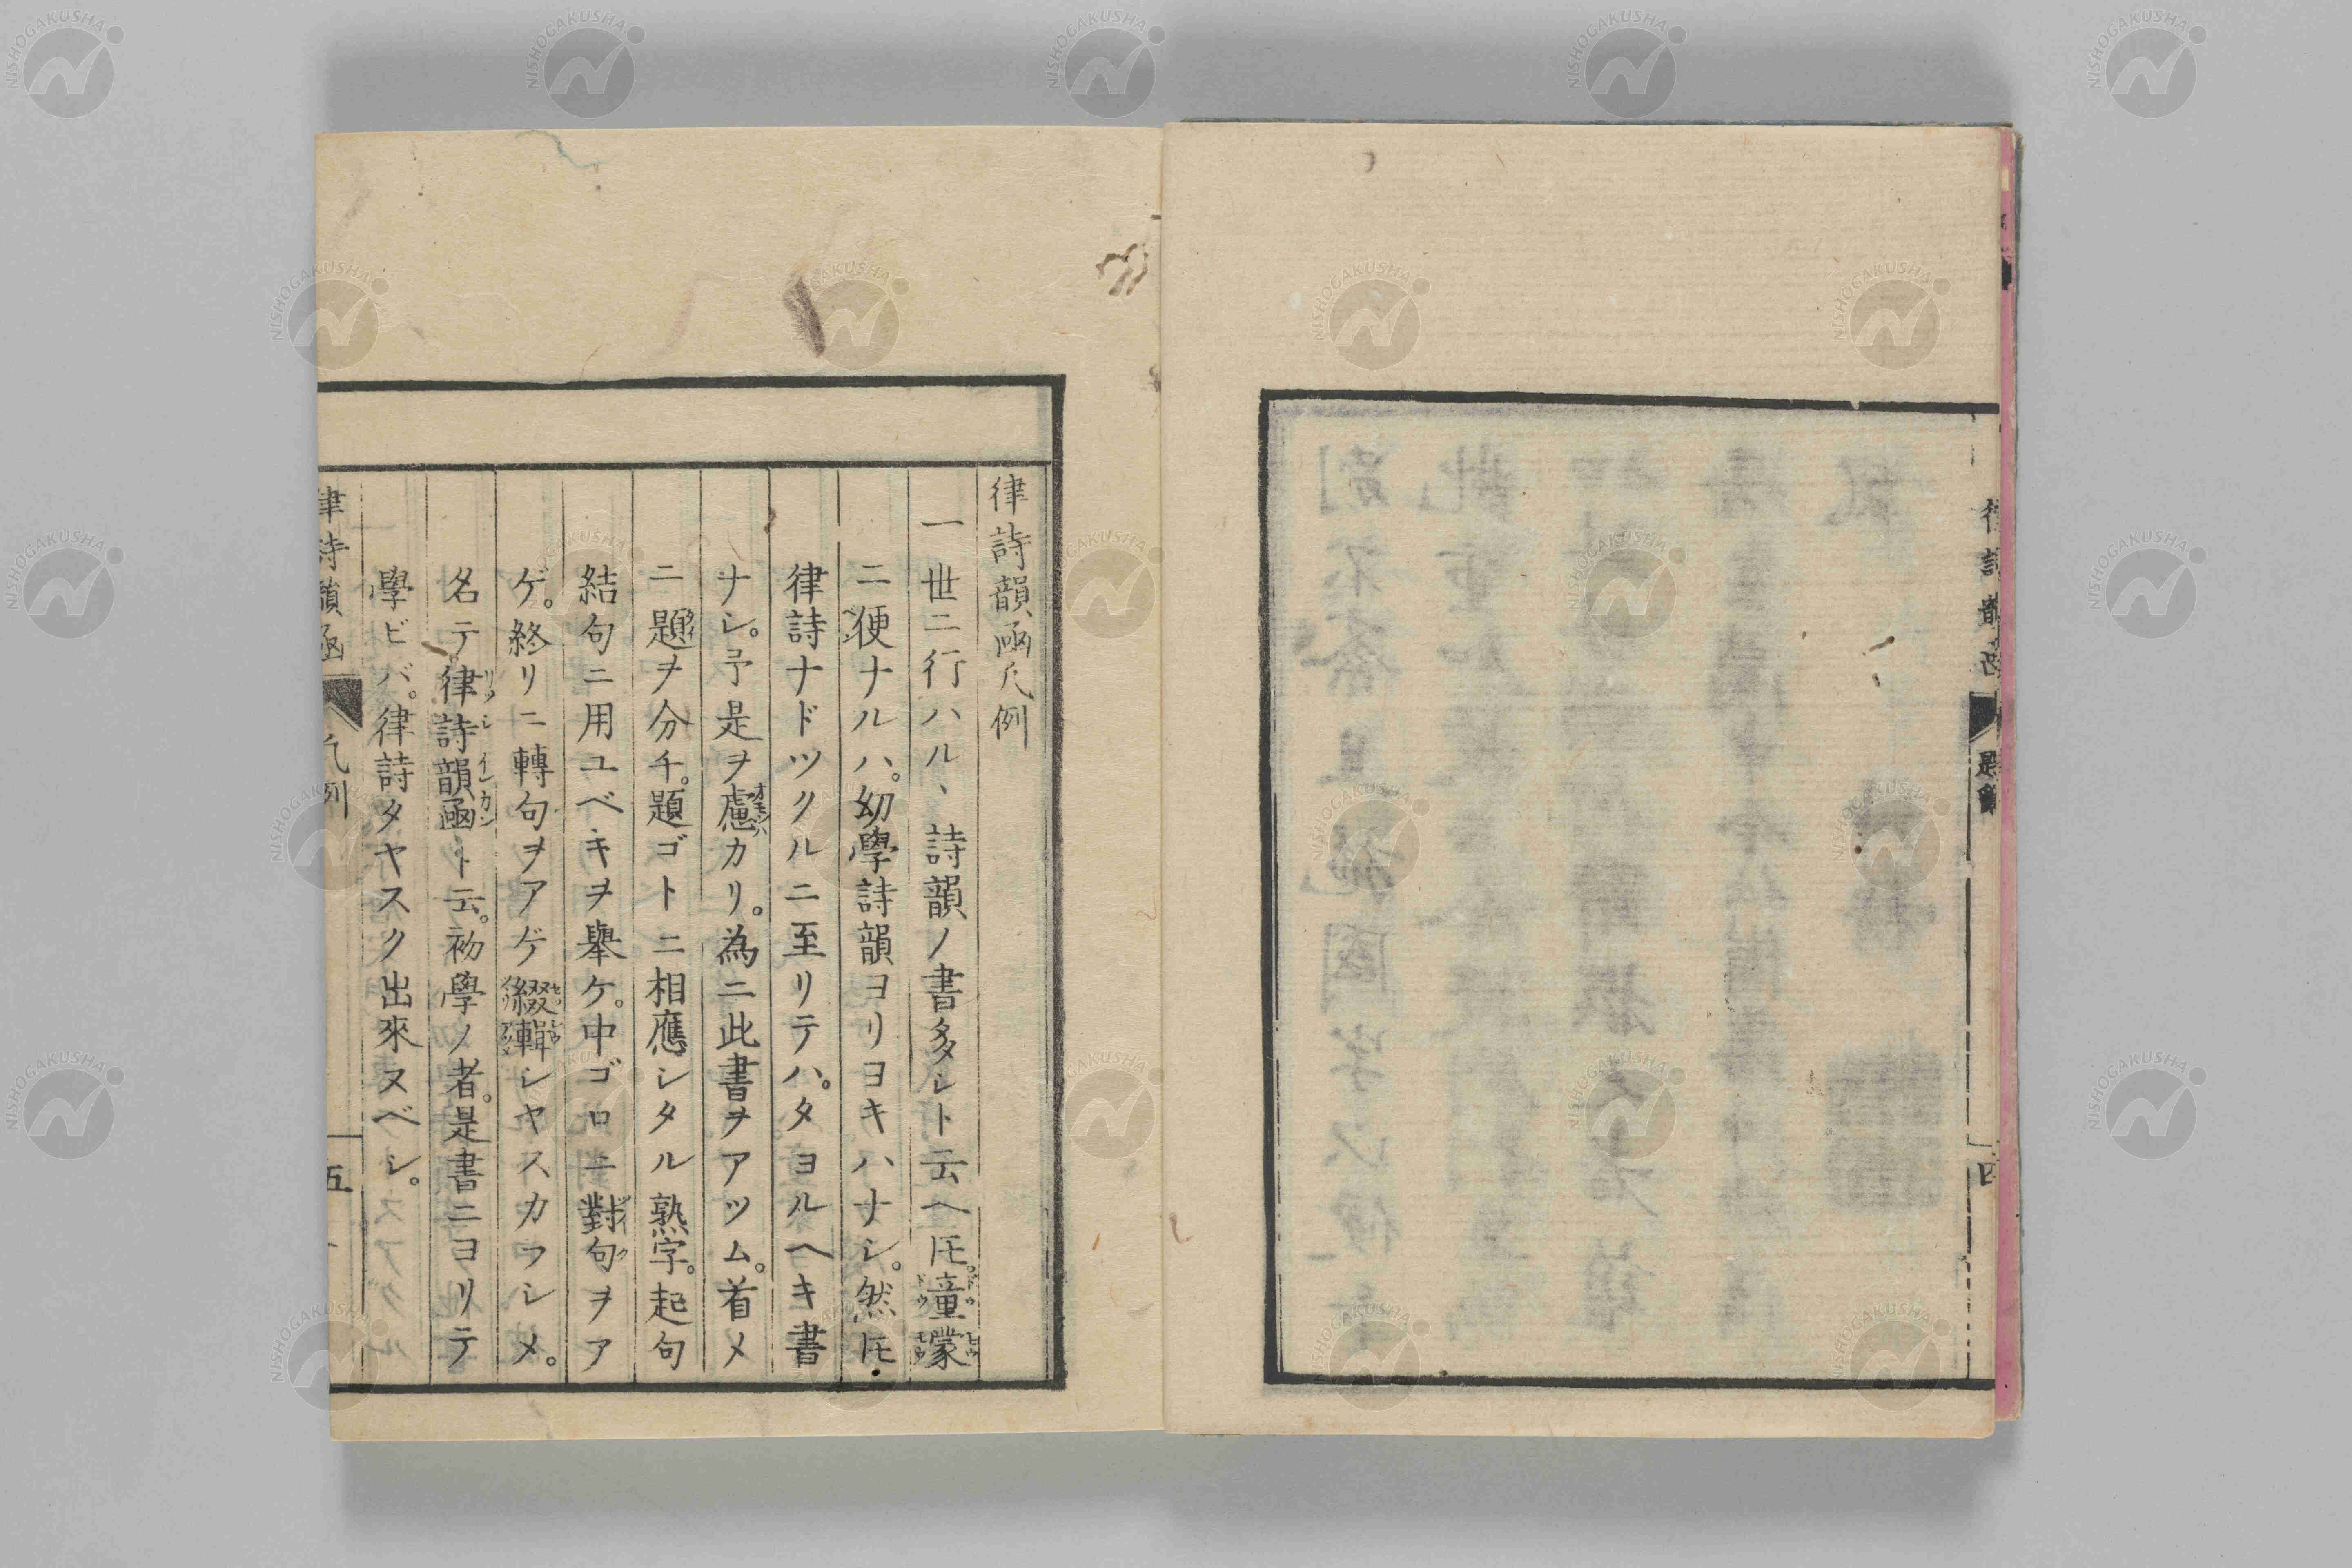 四
律詩韻函凡例
一世ニ行ハル、詩韻ノ書多シト云ヘ𪜈。童蒙
ニ便ナルハ。幼學詩韻ヨリヨキハナシ。然𪜈
律詩ナドツクルニ至リテハ。タヨルヘキ書
ナシ。予是ヲ慮カリ。為ニ此書ヲアツム。首メ
ニ題ヲ分チ。題ゴトニ相應シタル熟字。起句
結句ニ用ユベキヲ舉ケ。中ゴロニ對句ヲア
ゲ。終リニ轉句ヲアゲ綴輯シヤスカラシメ。
名テ律詩韻函ト云。初學ノ者。是書ニヨリテ
學ビバ。律詩タヤスク出來ヌベシ。
律詩韻函 凡例 五
NISHOGAKUSHA